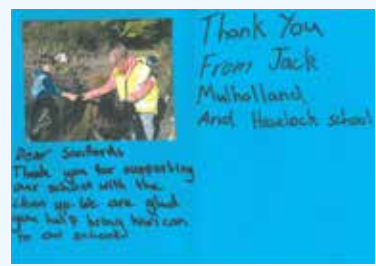 Thank You
From Jack
Mulholland
And Havelock school
Dear Sanfords
Thank you for supporting
our school with the
clean up. We are glad
you help bring
to our school